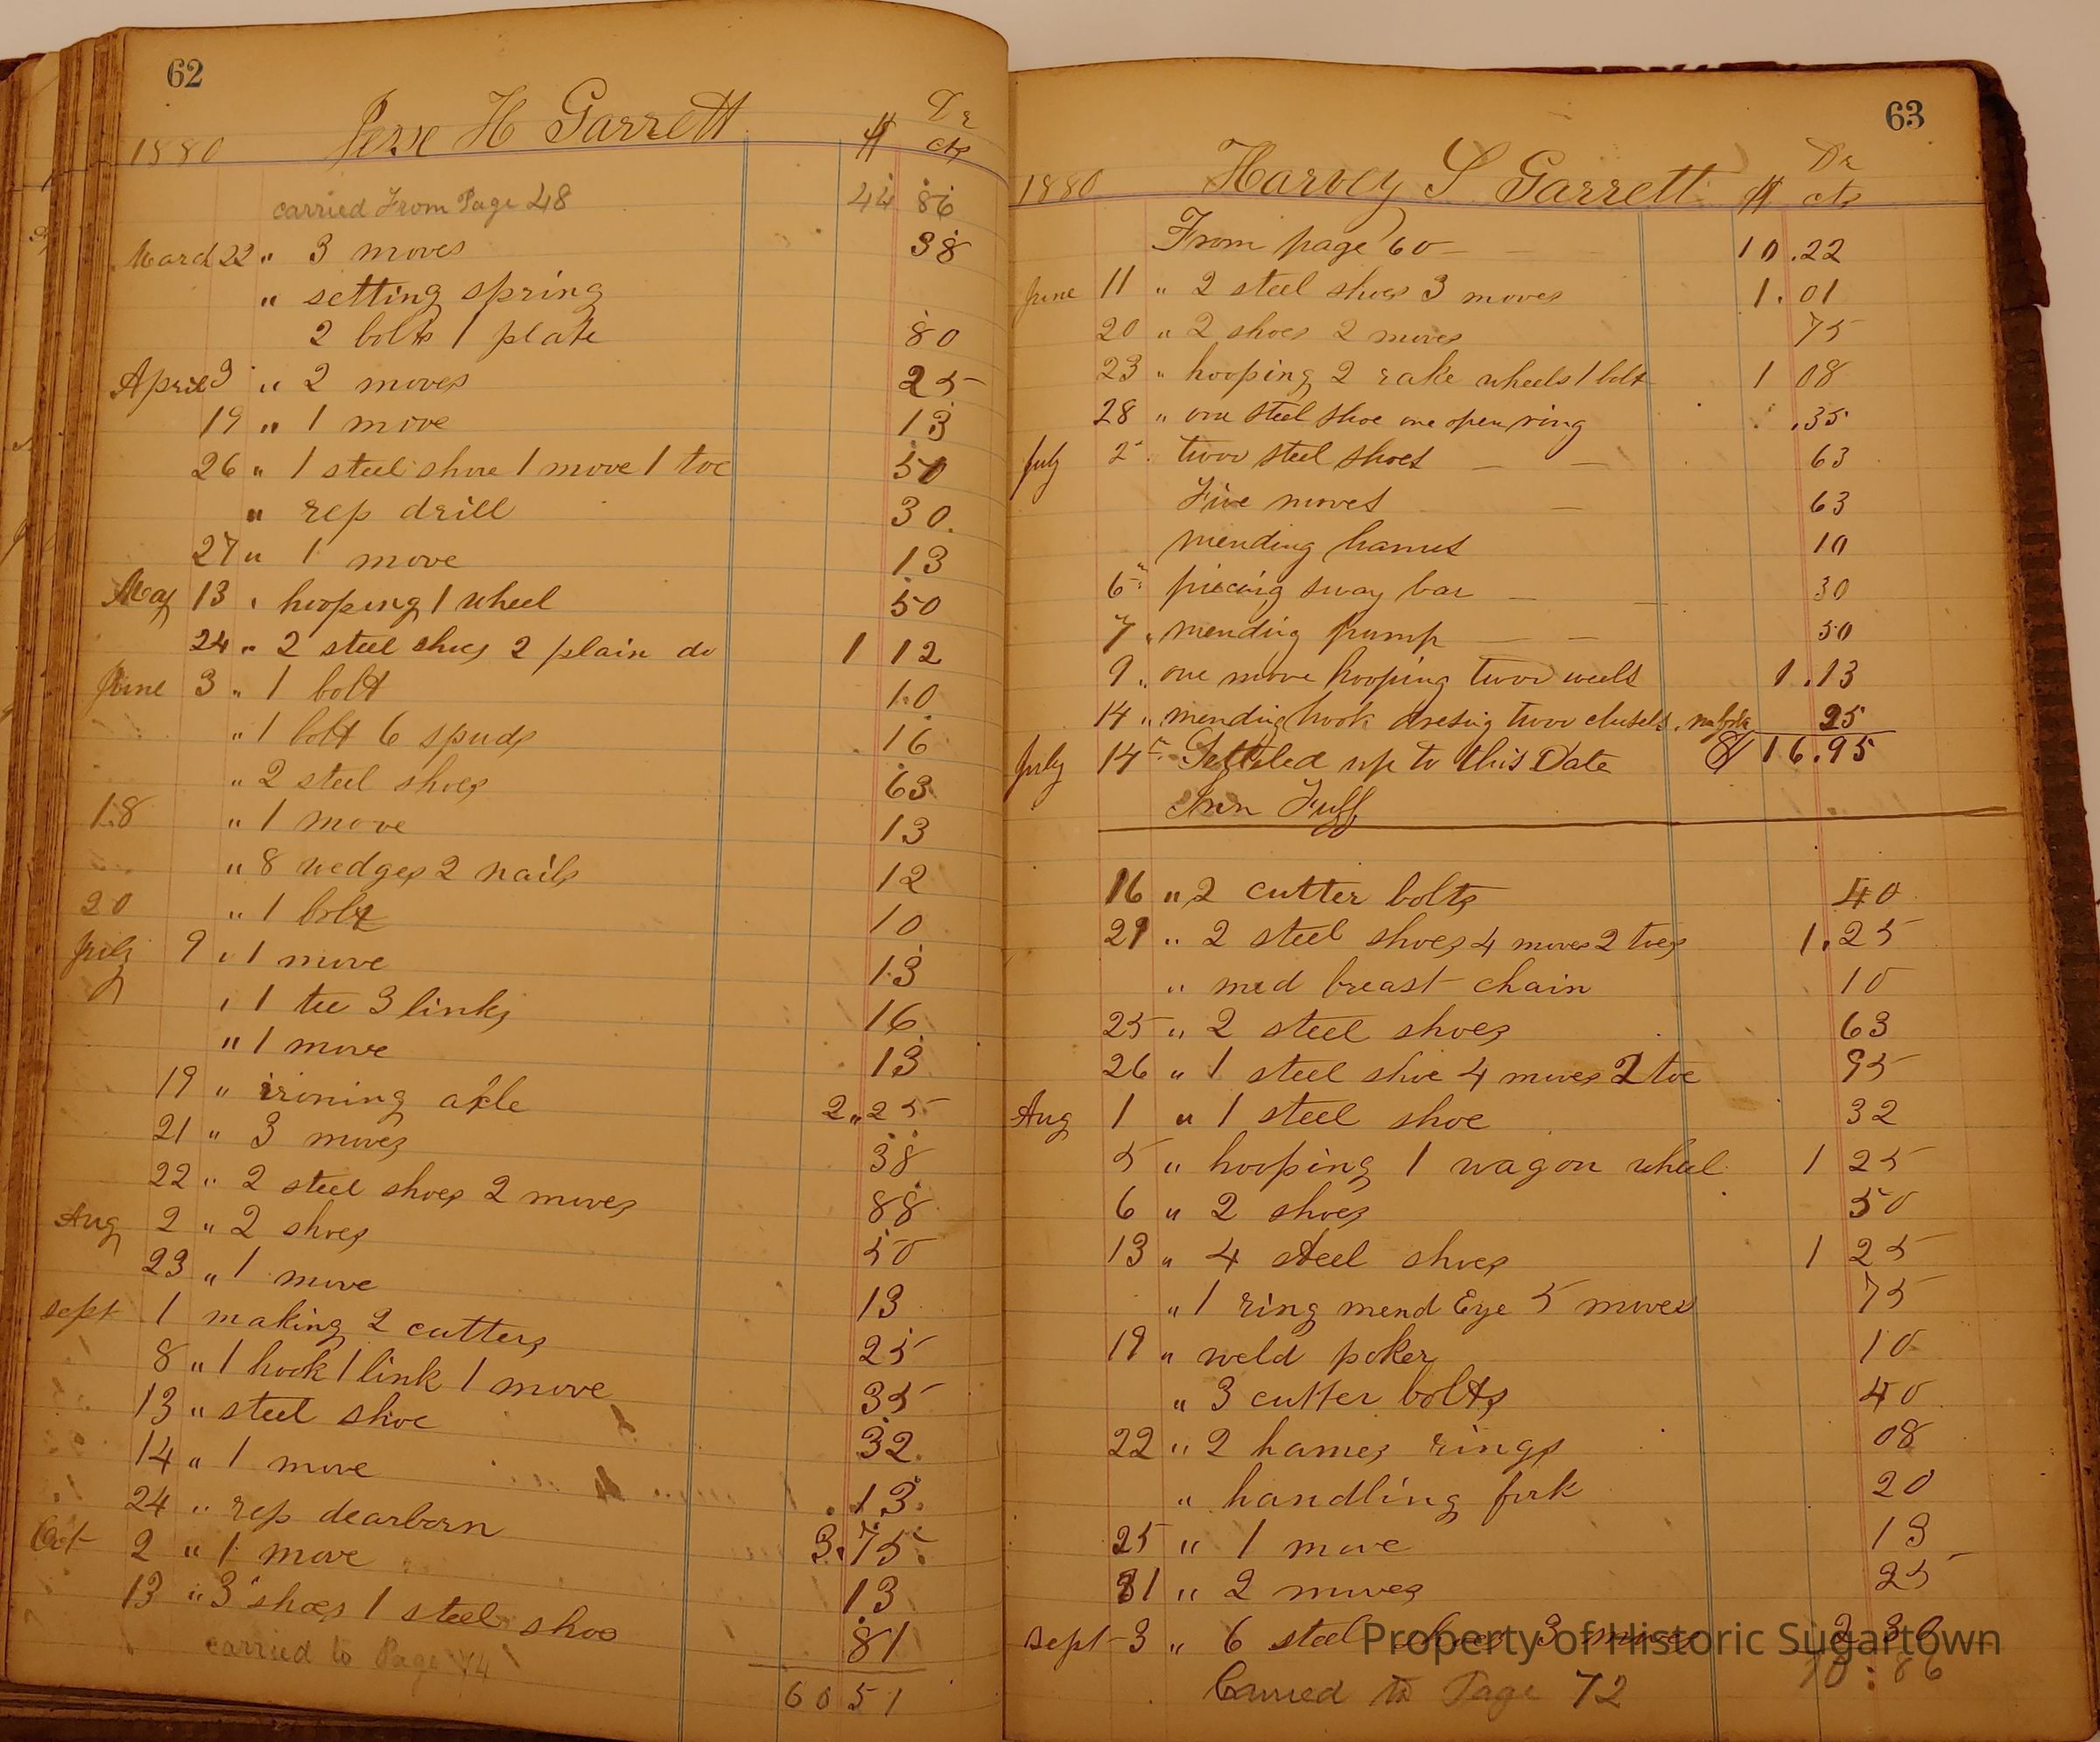 62
Jesse H Garrett
Dr
1880 $ cts
carried From Page 48 44 86
March 22 " 3 moves 38
" setting spring
2 bolts 1 plate 80
April 3 " 2 moves 25
19 " 1 move 13
26 " 1 steel shoe 1 move 1 toe 50
" rep drill 30
27 " 1 move 13
May 13 " hooping 1 wheel 50
24 " 2 steel shoes 2 plain do 1 12
June 3 " 1 bolt 10
" 1 bolt 6 spuds 16
" 2 steel shoes 63
18 " 1 move 13
" 8 wedges 2 nails 12
20 " 1 bolt 10
July 9 " 1 move 13
" 1 tee 3 links 16
" 1 move 13
19 " ironing axle 2 " 25
21 " 3 moves 38
22 " 2 steel shoes 2 moves 88
Aug 2 " 2 shoes 50
23 " 1 move 13
sept 1 making 2 cutters 25
8 " 1 hook 1 link 1 move 35
13 " steel shoe 32
14 " 1 move 13
24 " rep dearborn 3.75
Oct 2 " 1 move 13
13 " 3 shoes 1 steel shoe 81
carried to Page 74
60 51
63
Harvey S Garrett
Dr
1880 $ cts
From page 60 — 10.22
June 11 " 2 steel shoes 3 moves 1.01
20 " 2 shoes 2 moves 75
23 " hooping 2 rake wheels 1 bolt 1 08
28 " one steel shoe one open ring .35
July 2 twoo steel shoes — — 63
Five moves — 63
mending hames 10
6 " piecing sway bar — — 30
7 " mending pump — — 50
9 " one move hooping twoo weels 1.13
14 " mending hook dresing twoo chusels 25
July 14 " Settled up to this Date $ 16.95
In Full
16 " 2 cutter bolts 40
21 " 2 steel shoes 4 moves 2 toes 1.25
" med breast chain 10
25 " 2 steel shoes 63
26 " 1 steel shoe 4 moves 2 toe 95
Aug 1 " 1 steel shoe 32
5 " hooping 1 wagon wheel 1 25
6 " 2 shoes 50
13 " 4 steel shoes 1 25
" 1 ring mend Eye 5 moves 75
19 " weld poker 10
" 3 cutter bolts 40
22 " 2 hames rings 08
" handling fork 20
25 " 1 move 13
31 " 2 moves 25
sept 3 " 6 steel shoes 3 moves 2 30
Carried to Page 72 10:86
Property of Historic Sugartown